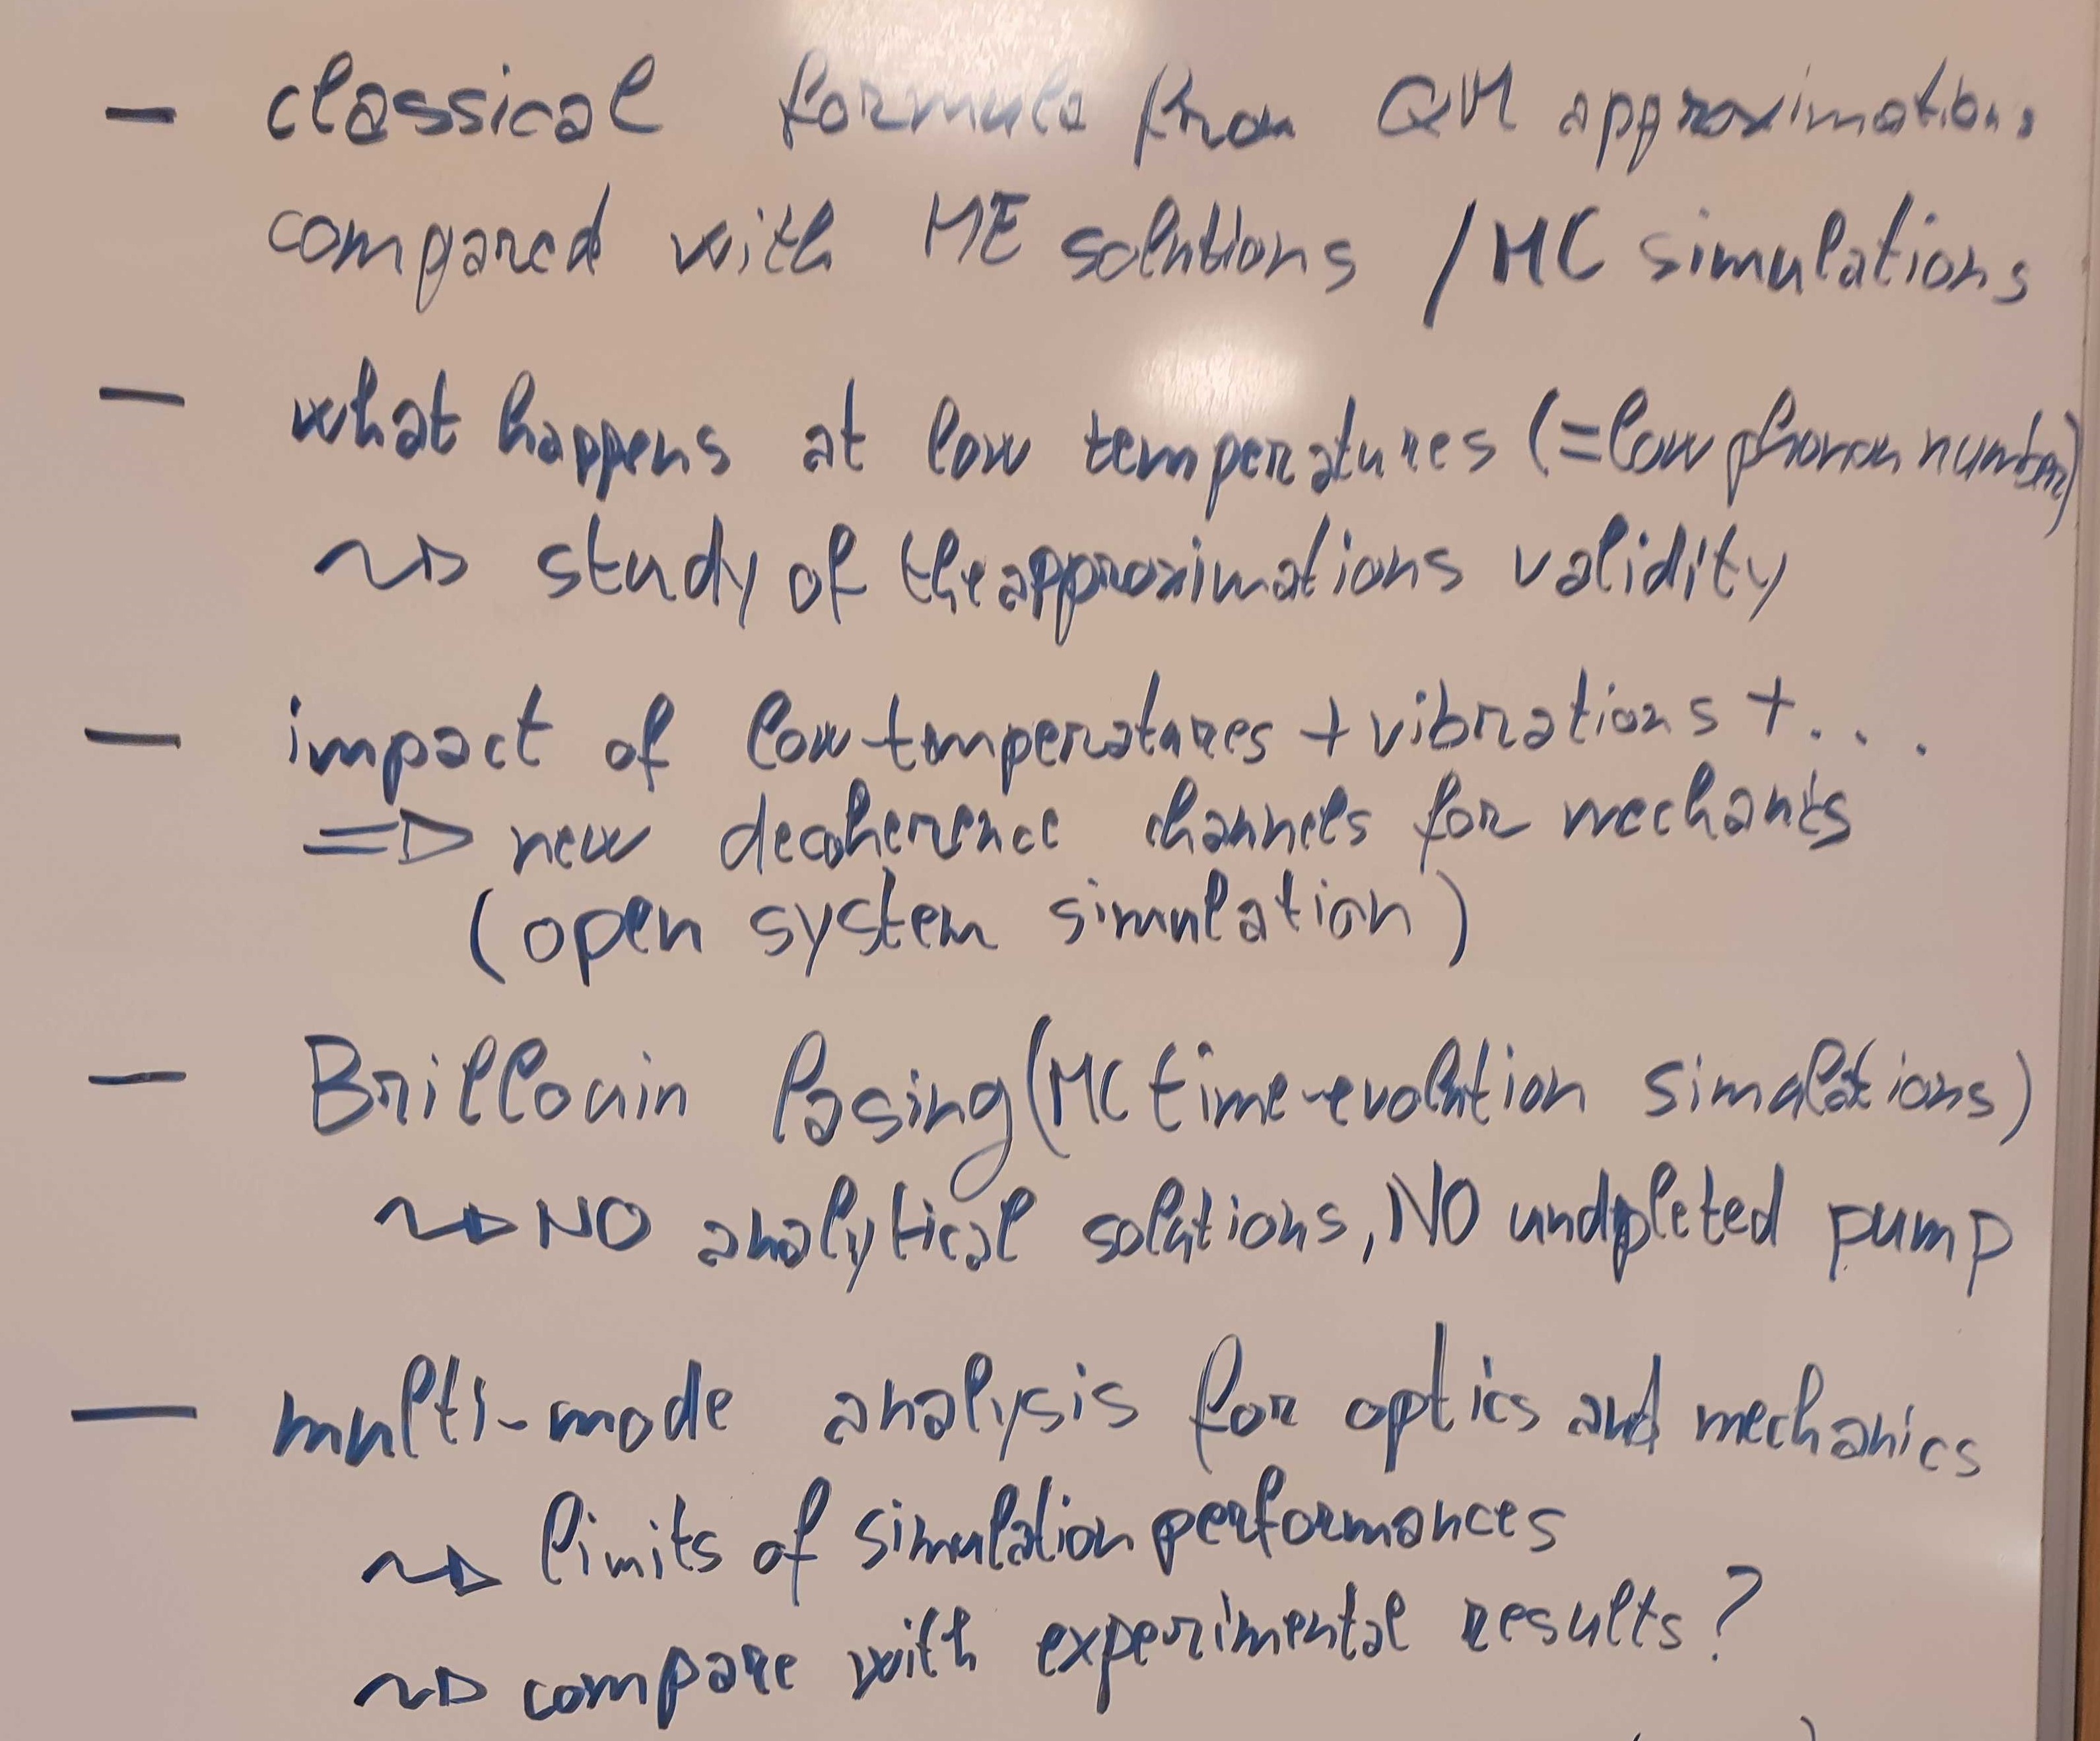 - classical formula from QM approximations
compared with ME solutions / MC simulations
- what happens at low temperatures (=low phonon number)
~> study of the approximations validity
- impact of low temperatures + vibrations + ...
=> new decoherence channels for mechanics
(open system simulation)
- Brillouin lasing (MC time-evolution simulations)
~> NO analytical solutions, NO undpleted pump
- multi-mode analysis for optics and mechanics
~> limits of simulation performances
~> compare with experimental results?